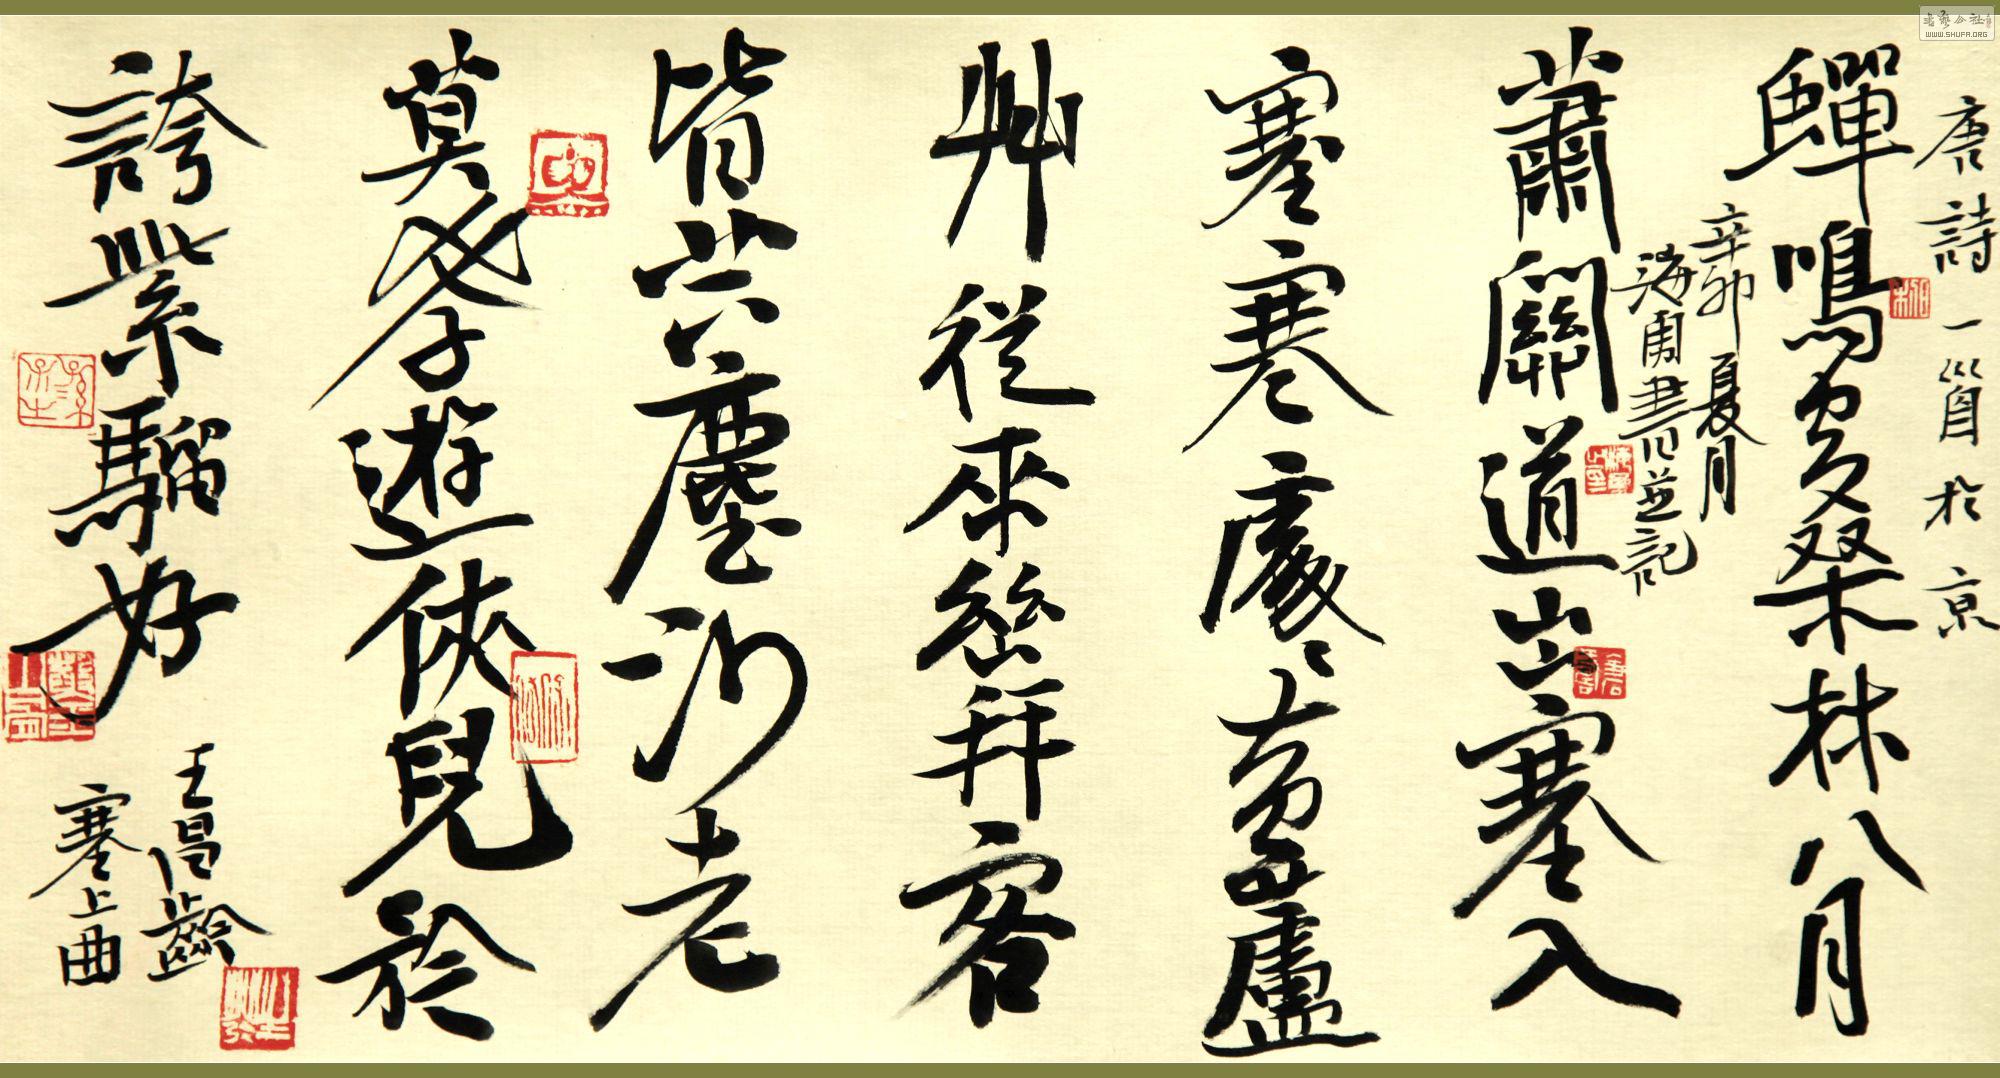 唐詩一首於京
蟬鳴桑林八月
辛卯夏月
海勇書並記
蕭關道出塞入
塞寒處々黃盧
艸從來幽并客
皆共塵沙老
莫學遊俠兒
誇紫騮好
王昌齡
塞上曲
書藝公社
WWW.SHUFA.ORG